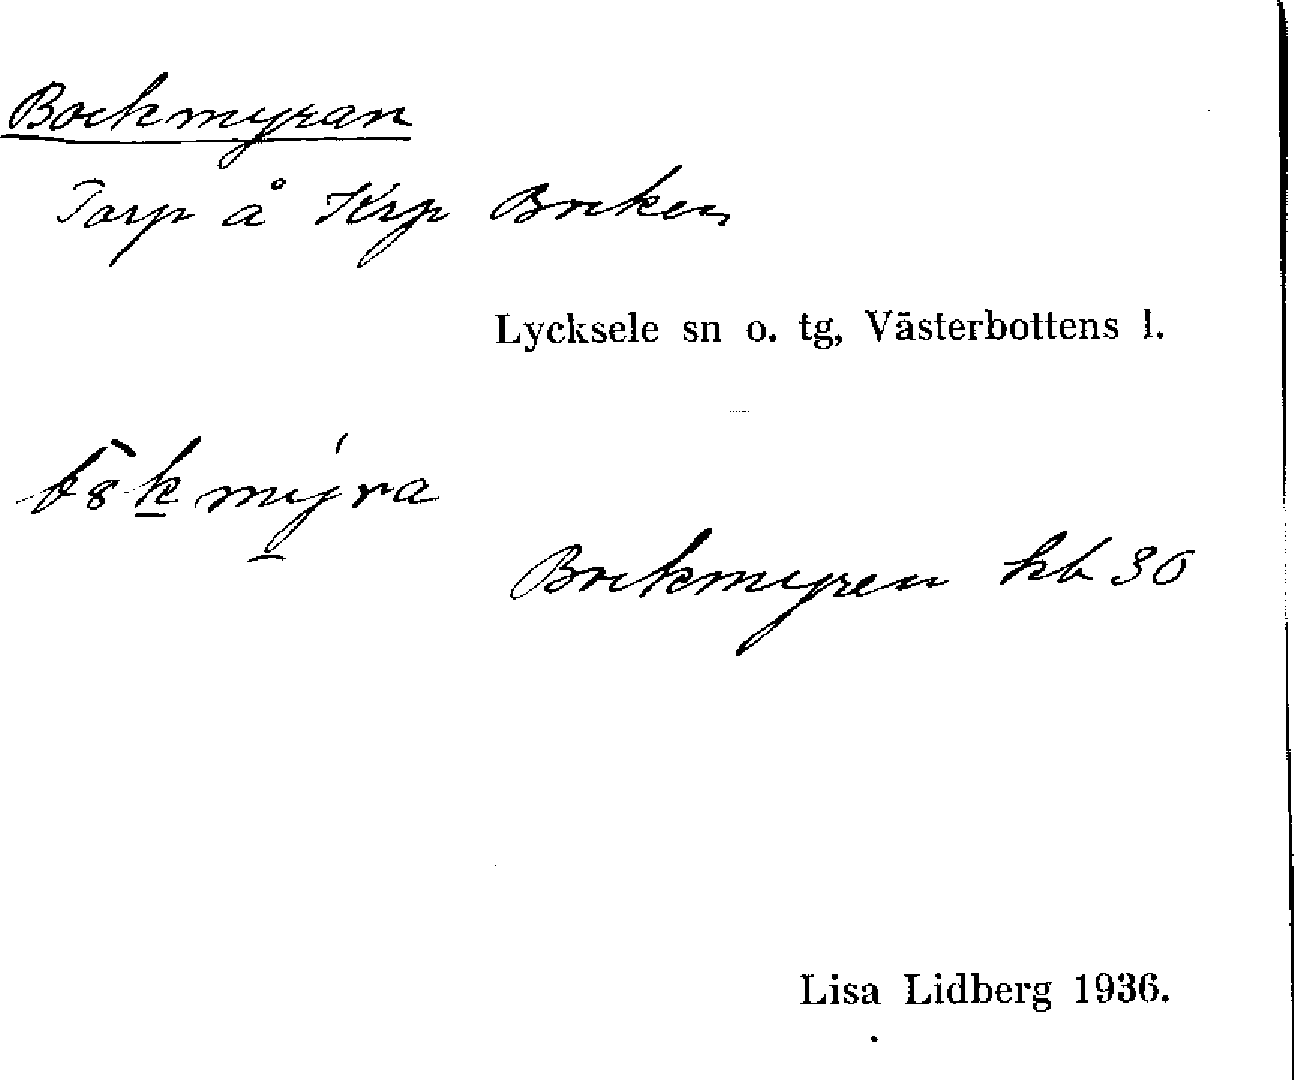 Bockmyran
Torp å Krp Bocken
Lycksele sn o. tg, Västerbottens l.
Bockmyren kb 30
Lisa Lidberg 1936.